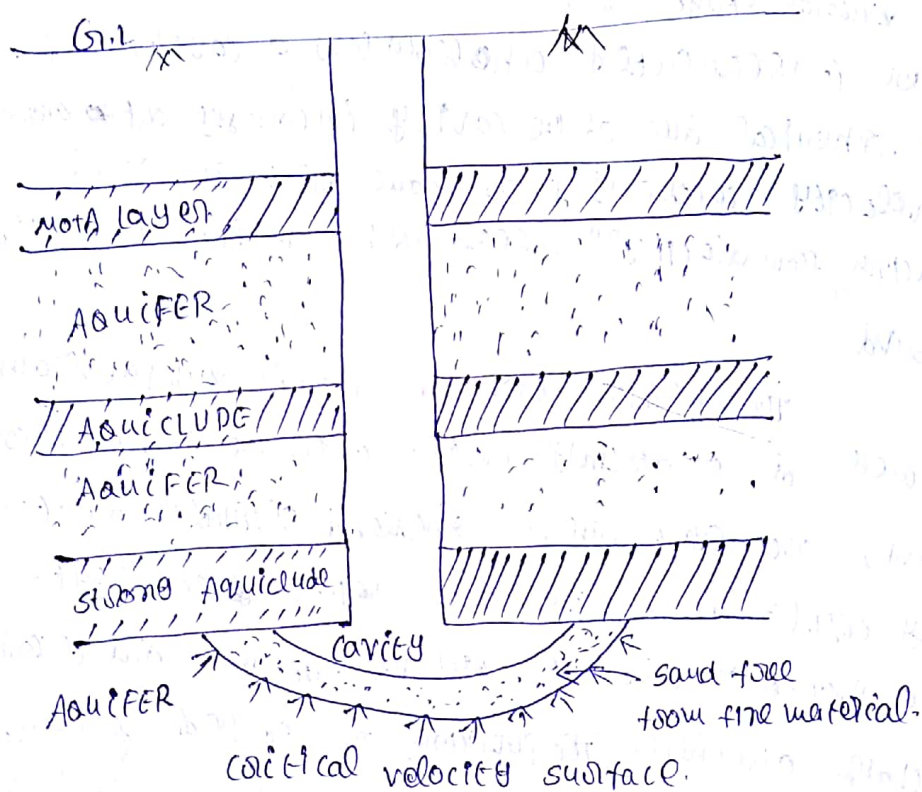 G.L
MOTA layer
AQUIFER
AQUICLUDE
AQUIFER
strong Aquiclude
cavity
AQUIFER
sand free
from fine material.
critical velocity surface.